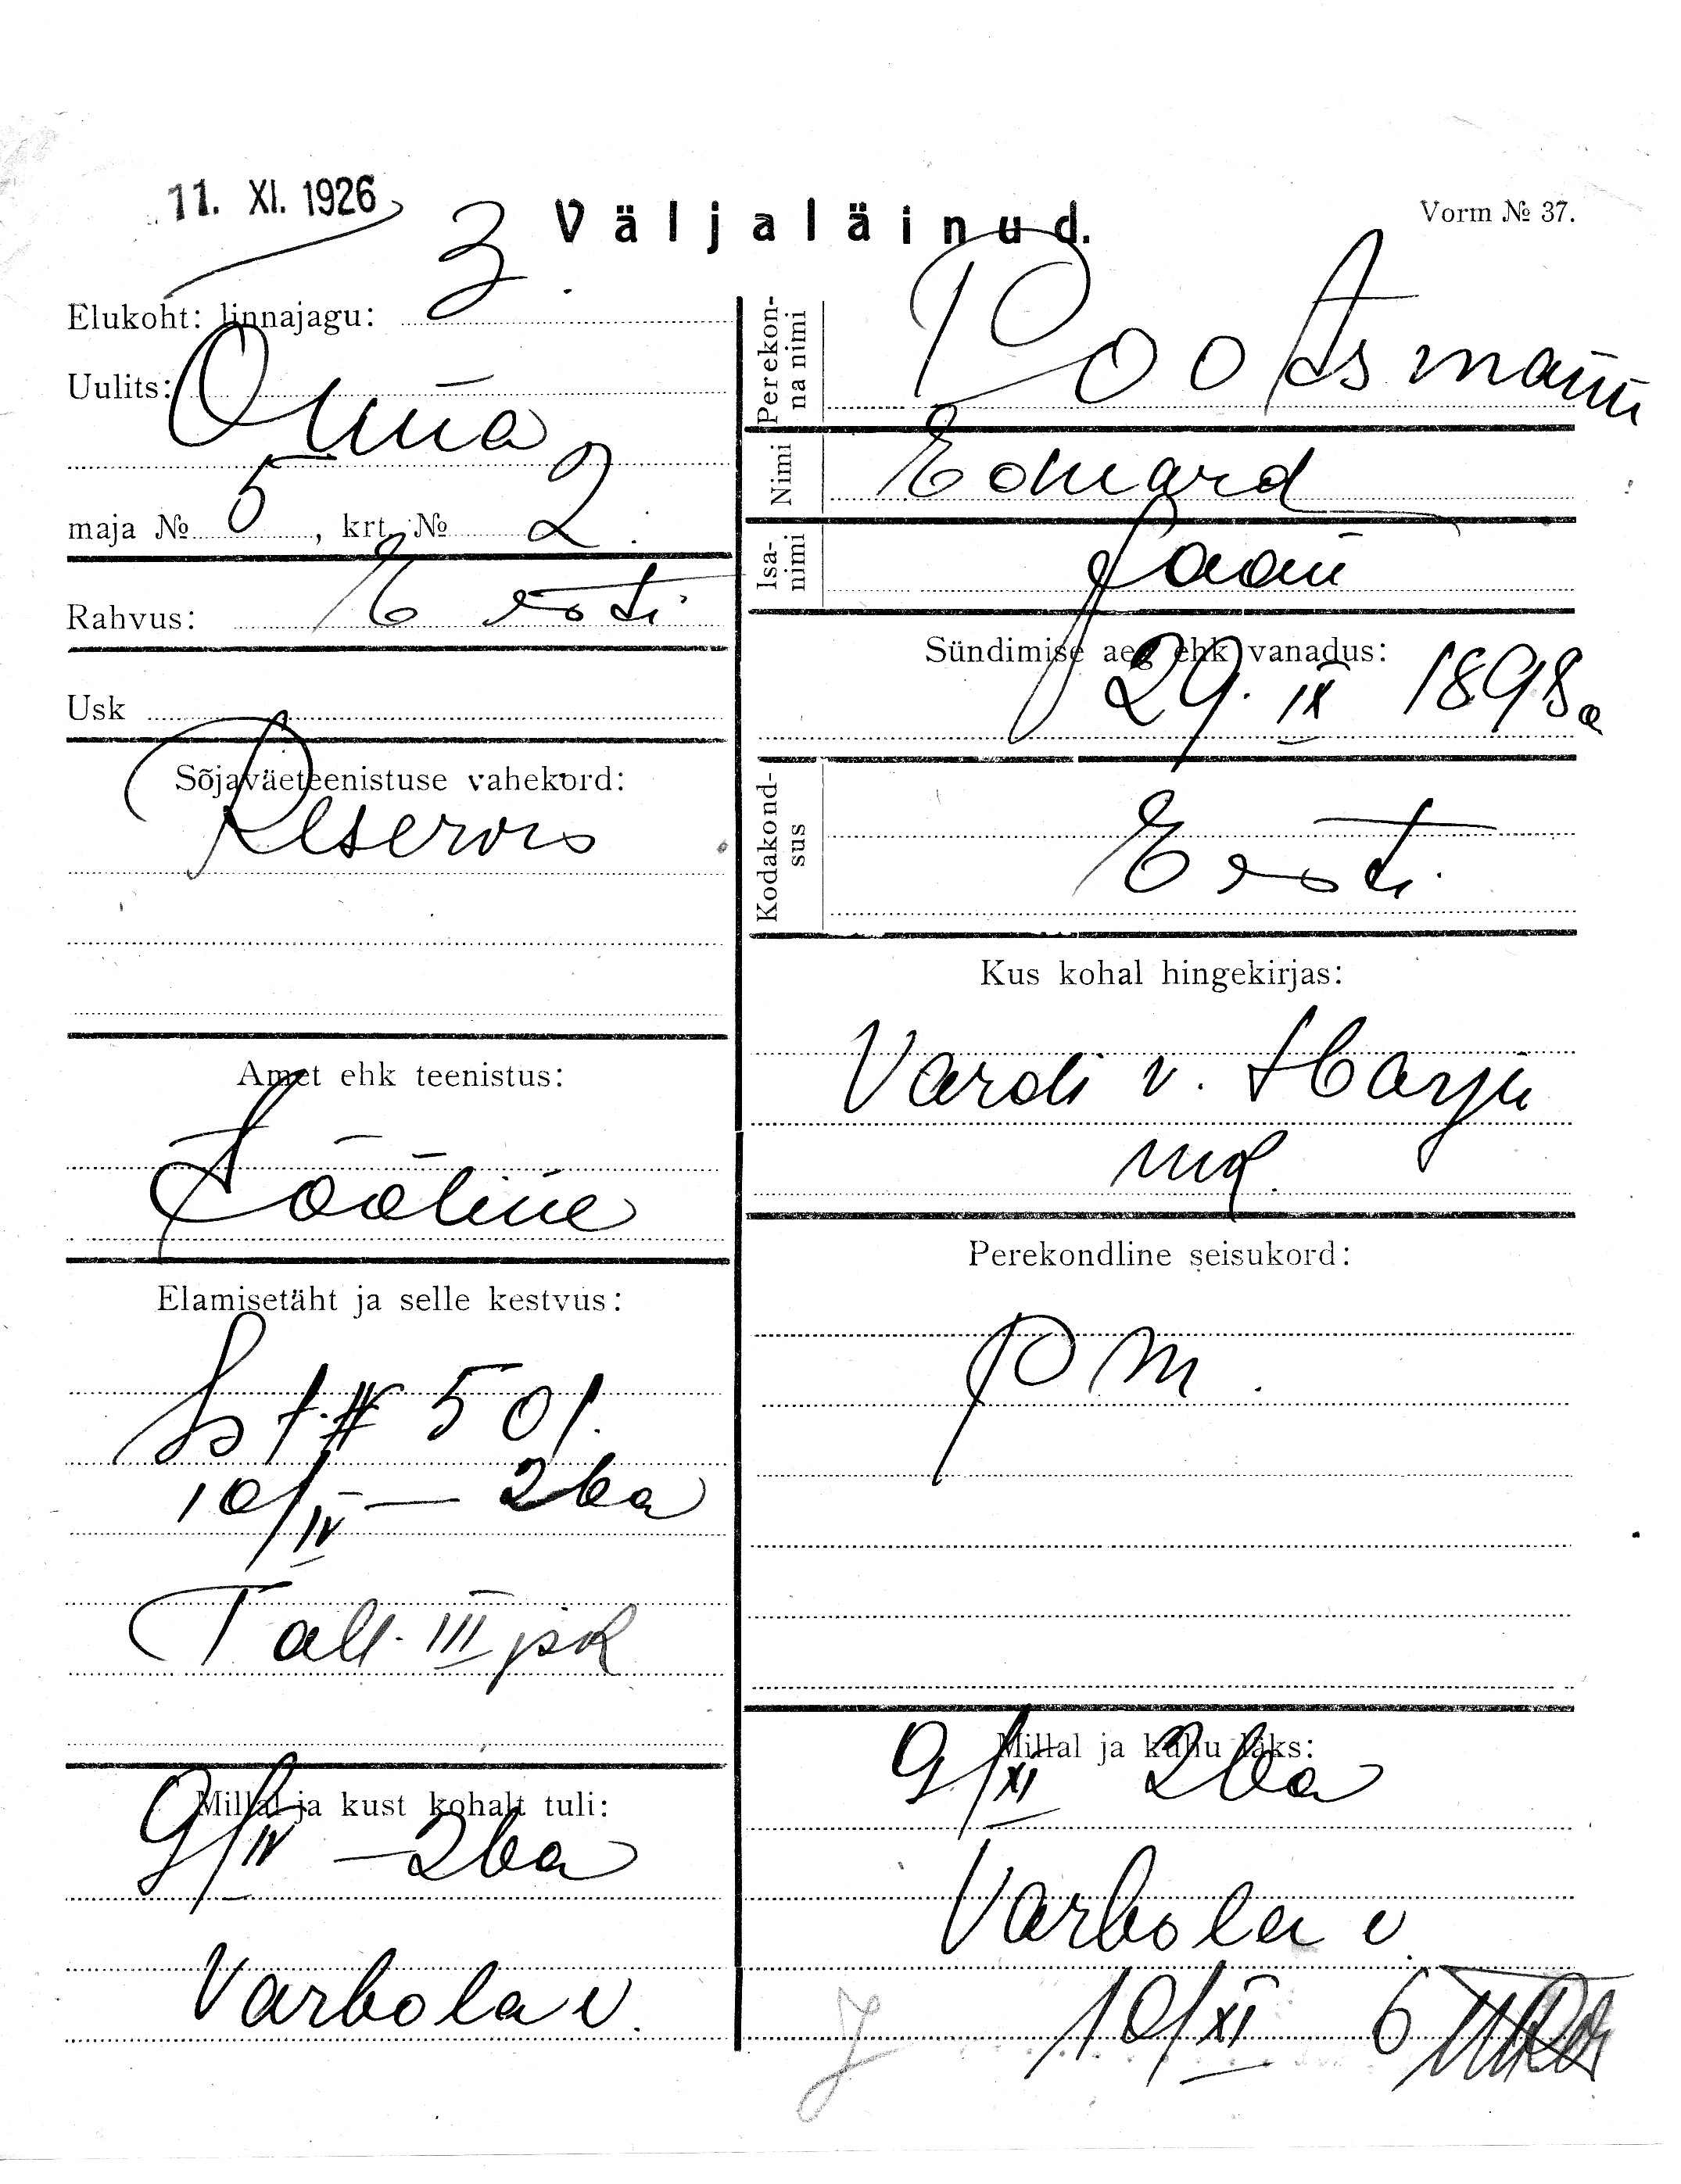 11. XI. 1926
Väljaläinud.
Vorm № 37.
Elukoht: linnajagu: 3.
Uulits: Oma
maja № 5, krt. № 2.
Rahvus: Eesti
Usk
Sõjaväeteenistuse vahekord:
Reservis
Amet ehk teenistus:
Tööline
Elamisetäht ja selle kestvus:
501.
10/IV — 26 a
Tall. III jsk
Millal ja kust kohalt tuli:
9/IV — 26 a
Varbola v.
Perekonna nimi
Pootsmann
Nimi
Eduard
Isanimi
Jaani
Sündimise aeg ehk vanadus:
29. IX 1898 a
Kodakondsus
Eesti
Kus kohal hingekirjas:
Vardi v. Harju
mk.
Perekondline seisukord:
p m.
Millal ja kuhu läks:
9/XI 26 a
Varbola v.
10/XI 6